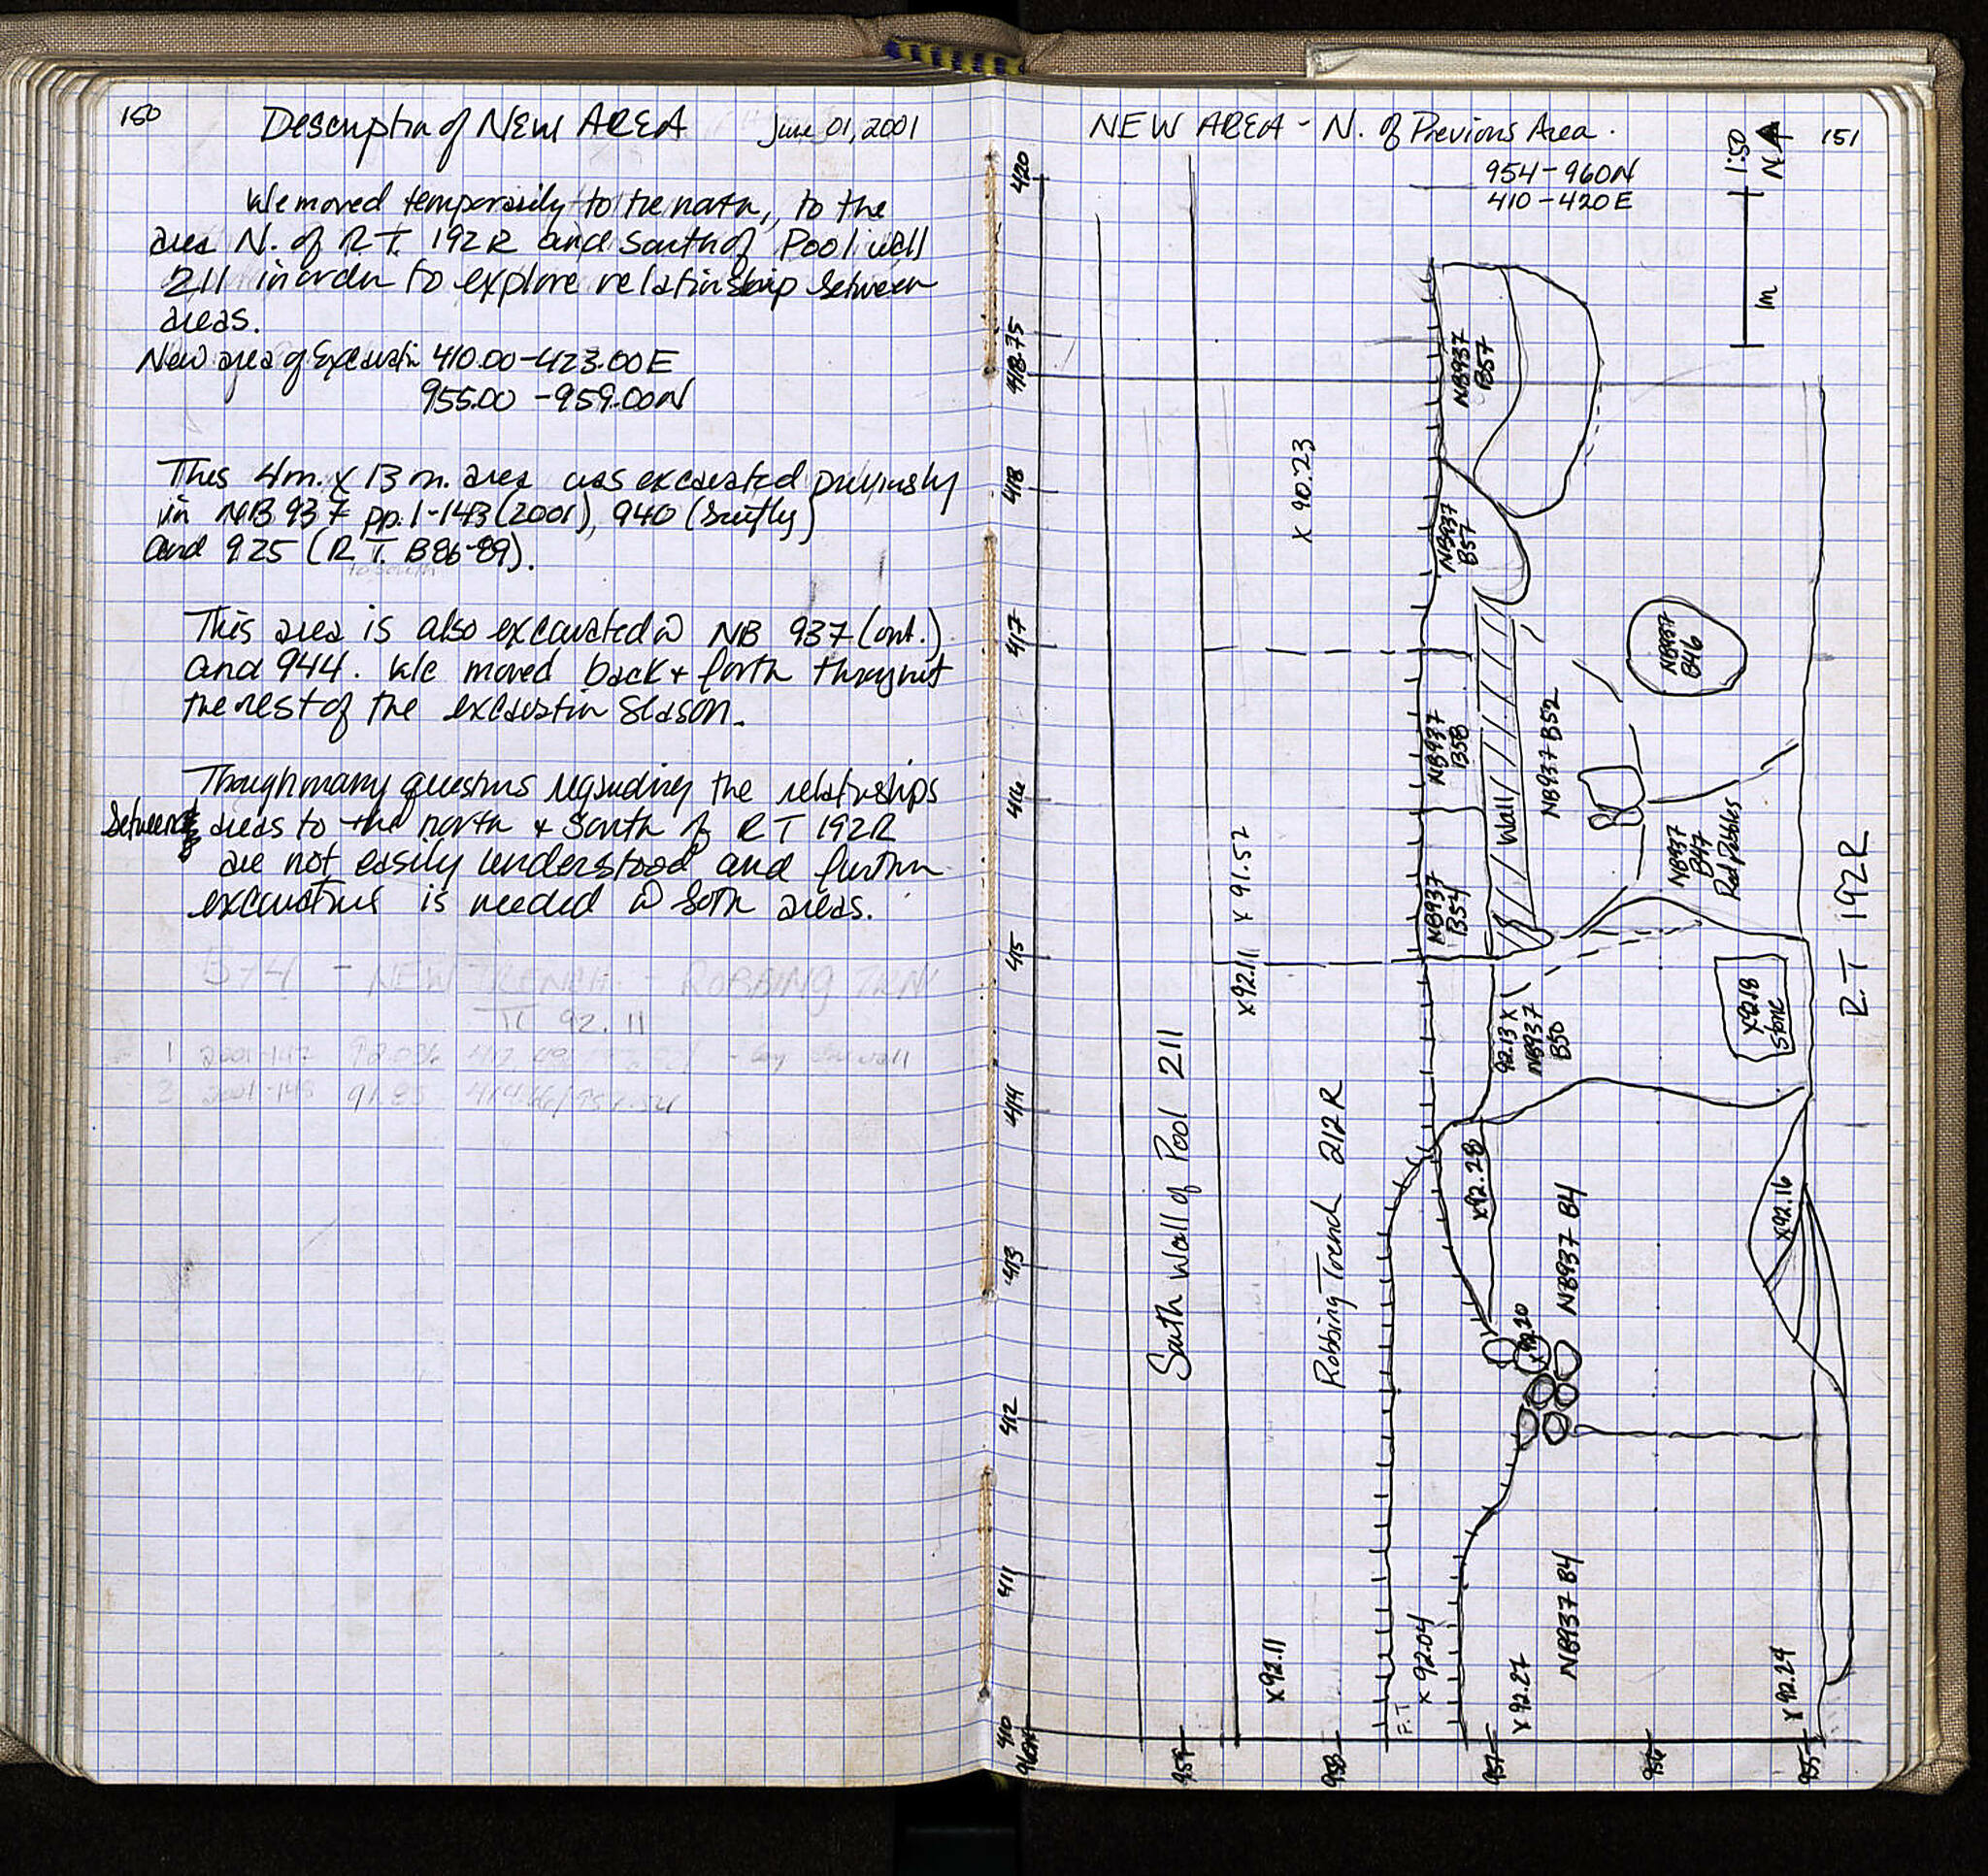 150
Description of NEW AREA June 01, 2001
We moved temporarily to the north, to the
area N. of R.T. 192R and south of Pool wall
211 in order to explore relationship between
areas.
New area of Excavatin 410.00-423.00E
955.00 -959.00N
This 4m. x 13m. area was excavated previously
in NB 937 pp. 1-143 (2001), 940 (briefly)
and 925 (R.T. B86-89).
to south
This area is also excavated in NB 937 (cont.)
and 944. We moved back + forth throughout
the rest of the excavatin season.
Though many questions regarding the relatinships
between areas to the north + South of RT 192R
are not easily understood and further
excavations is needed in both areas.
B74 - NEW TRENCH - ROBBING TREN
92.11
1 2001-147 92.036
3 2001-148 91.85
NEW AREA - N. of Previous Area.
151
954-960N
410-420E
1:50
N
1m
420
418.75
418
417
416
415
414
413
412
411
410
960N
959
958
957
956
955
South Wall of Pool 211
Robbing Trench 212R
R.T 192R
x 90.23
x 91.52
x 92.11
x 92.11
F.T
x 92.04
x 92.27
x 92.29
NB937 B4
NB937 B4
x 92.20
x 92.28
x 92.16
92.13 x
NB937
B50
x 92.18
Stone
NB937
B54
NB937
B58
Wall
NB937 B52
NB937
B47
Red Pebbles
NB937
B46
NB937
B57
NB937
B57